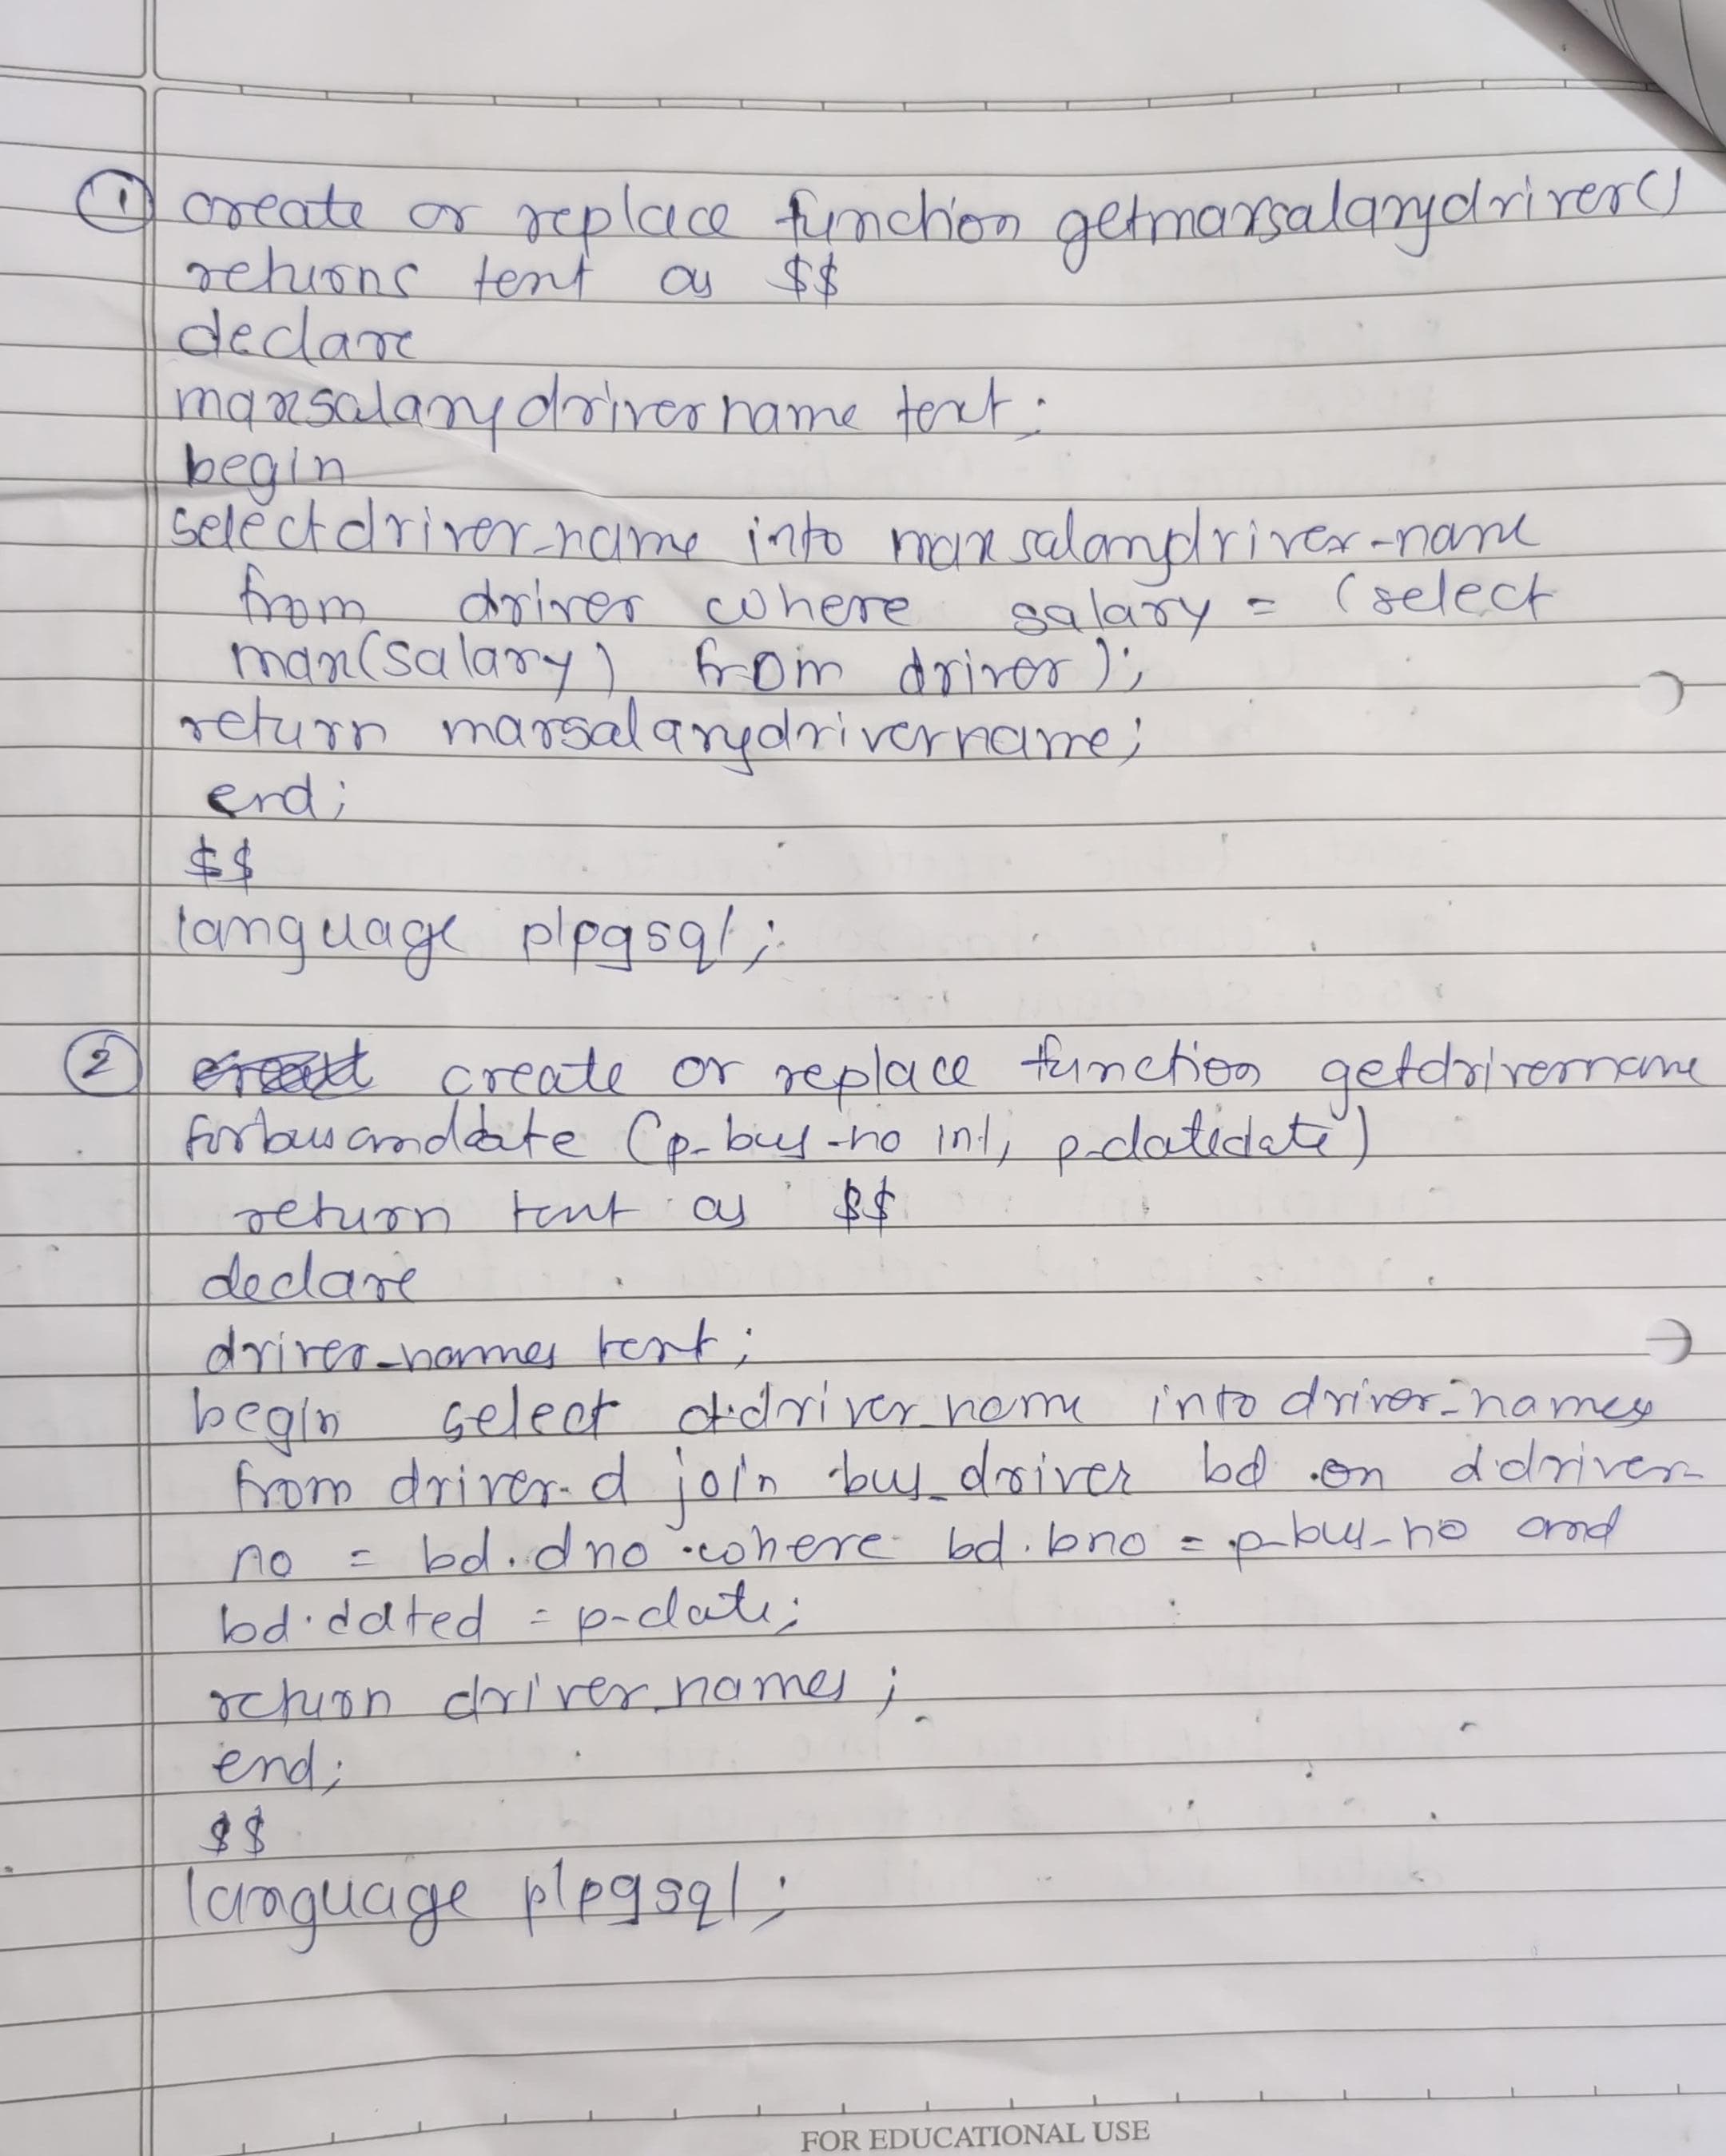 ① create or replace function getmaxsalarydriver()
returns text as $$
declare
maxsalarydrivername text;
begin
select driver_name into maxsalarydriver-name
from driver where salary = (select
max(salary) from driver);
return maxsalarydrivername;
end;
$$
language plpgsql;
② create or replace function getdrivername
forbusanddate (p-bus-no int, p-date date)
return text as $$
declare
driver_names text;
begin select d.driver_name into driver_names
from driver d join bus_driver bd on d.driver-
no = bd.dno where bd.bno = p-bus-no and
bd.dated = p-date;
return driver_names;
end;
$$
language plpgsql;
FOR EDUCATIONAL USE